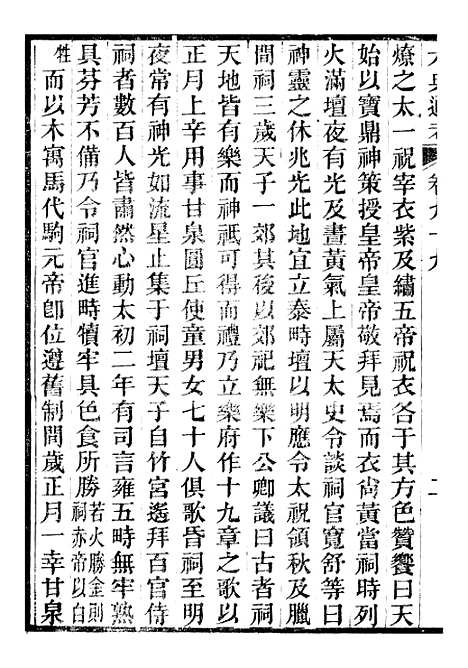 燎之太一祝宰衣紫及繡五帝祝衣各于其方色贊饗曰天
始以寶鼎神策授皇帝皇帝敬拜見焉而衣尙黃當祠時列
火滿壇夜有光及晝黃氣上屬天太史令談祠官寬舒等曰
神靈之休兆光此地宜立泰畤壇以明應令太祝領秋及臘
間祠三歲天子一郊其後以郊祀無樂下公卿議曰古者祠
天地皆有樂而神祗可得而禮乃立樂府作十九章之歌以
正月上辛用事甘泉圜丘使童男女七十人俱歌昏祠至明
夜常有神光如流星止集于祠壇天子自竹宮遙拜百官侍
祠者數百人皆肅然心動太初二年有司言雍五畤無牢熟
具芬芳不備乃令祠官進畤犢牢具色食所勝若火勝金則祠赤帝以白
牲而以木寓馬代駒元帝卽位遵舊制間歲正月一幸甘泉